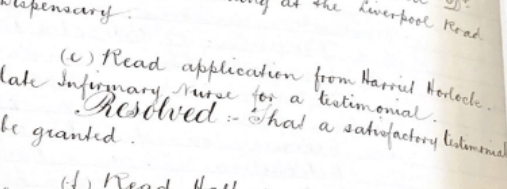 at the Liverpool Road
Dispensary.
(e) Read application from Harriet Horlock.
late Infirmary Nurse for a testimonial.
Resolved :- That a satisfactory testimonial
be granted.
(f) Read